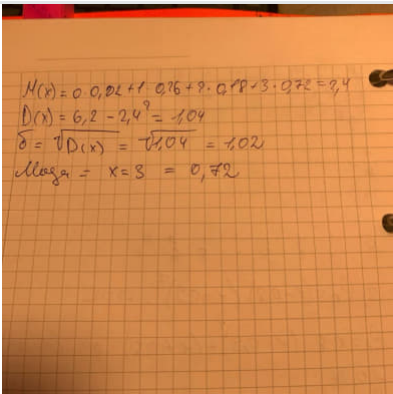 M(x) = 0·0,02+1·0,26+2·0,18+3·0,72=2,4
D(x) = 6,2 - 2,4² = 1,04
σ = √D(x) = √1,04 = 1,02
Мода = x=3 = 0,72